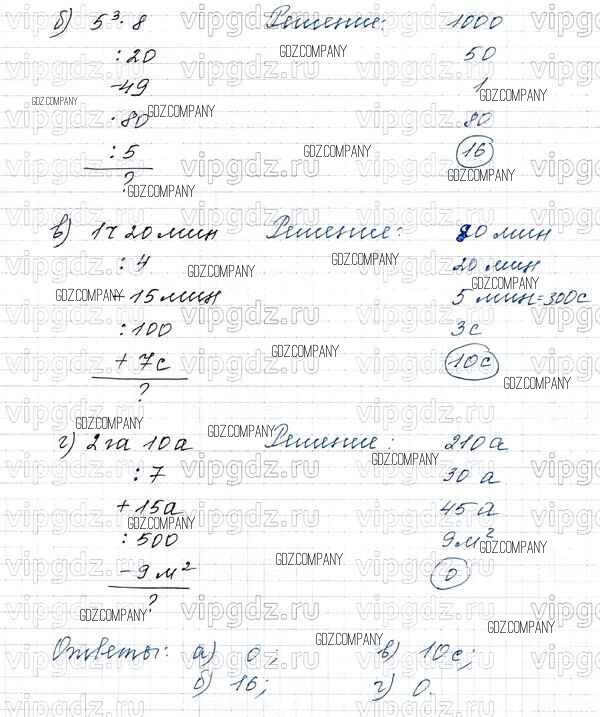 б) 5³ · 8 Решение: 1000
: 20 50
-49 1
· 80 80
: 5 16
?
в) 1ч 20 мин Решение: 80 мин
: 4 20 мин
- 15 мин 5 мин = 300с
: 100 3с
+ 7с 10с
?
г) 2га 10а Решение: 210а
: 7 30 а
+ 15а 45 а
: 500 9м²
- 9м² 0
?
Ответы: а) 0; в) 10с;
б) 16; г) 0.
GDZ.COMPANY
vipgdz.ru